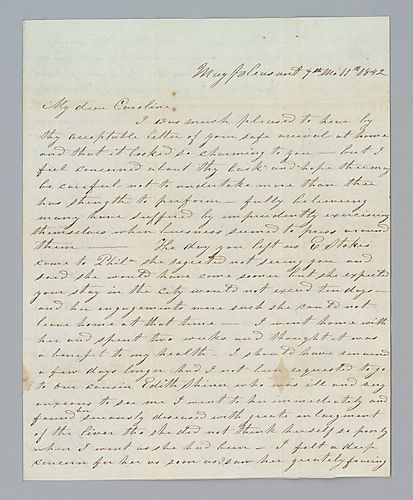 May Pleasant 7th Mo 11th 1842
My dear Caroline
I was much pleased to hear by
thy acceptable letter of your safe arrival at home
and that it looked so charming to you — but I
feel concerned about thy back and hope thee may
be careful not to undertake more than thee
has strength to perform — fully believing
many have suffered by imprudently exercising
themselves when business seemed to press around
them — The day you left us E Stokes
came to Phila she regreted not seeing you and
said she would have come sooner but she expected
your stay in the city would not exceed ten days —
and her engagements were such she could not
leave home at that time — I went home with
her and spent two weeks and thought it was
a benefit to my health — I should have remained
a few days longer had I not been requested to go
to our cousin Edith Shinn who was ill and very
anxious to see me I went to her immediately and
found her seriously diseased with great enlargment
of the liver tho she did not think herself so poorly
when I went as she had been — I felt a deep
concern for her as soon as I saw her greatly fearing